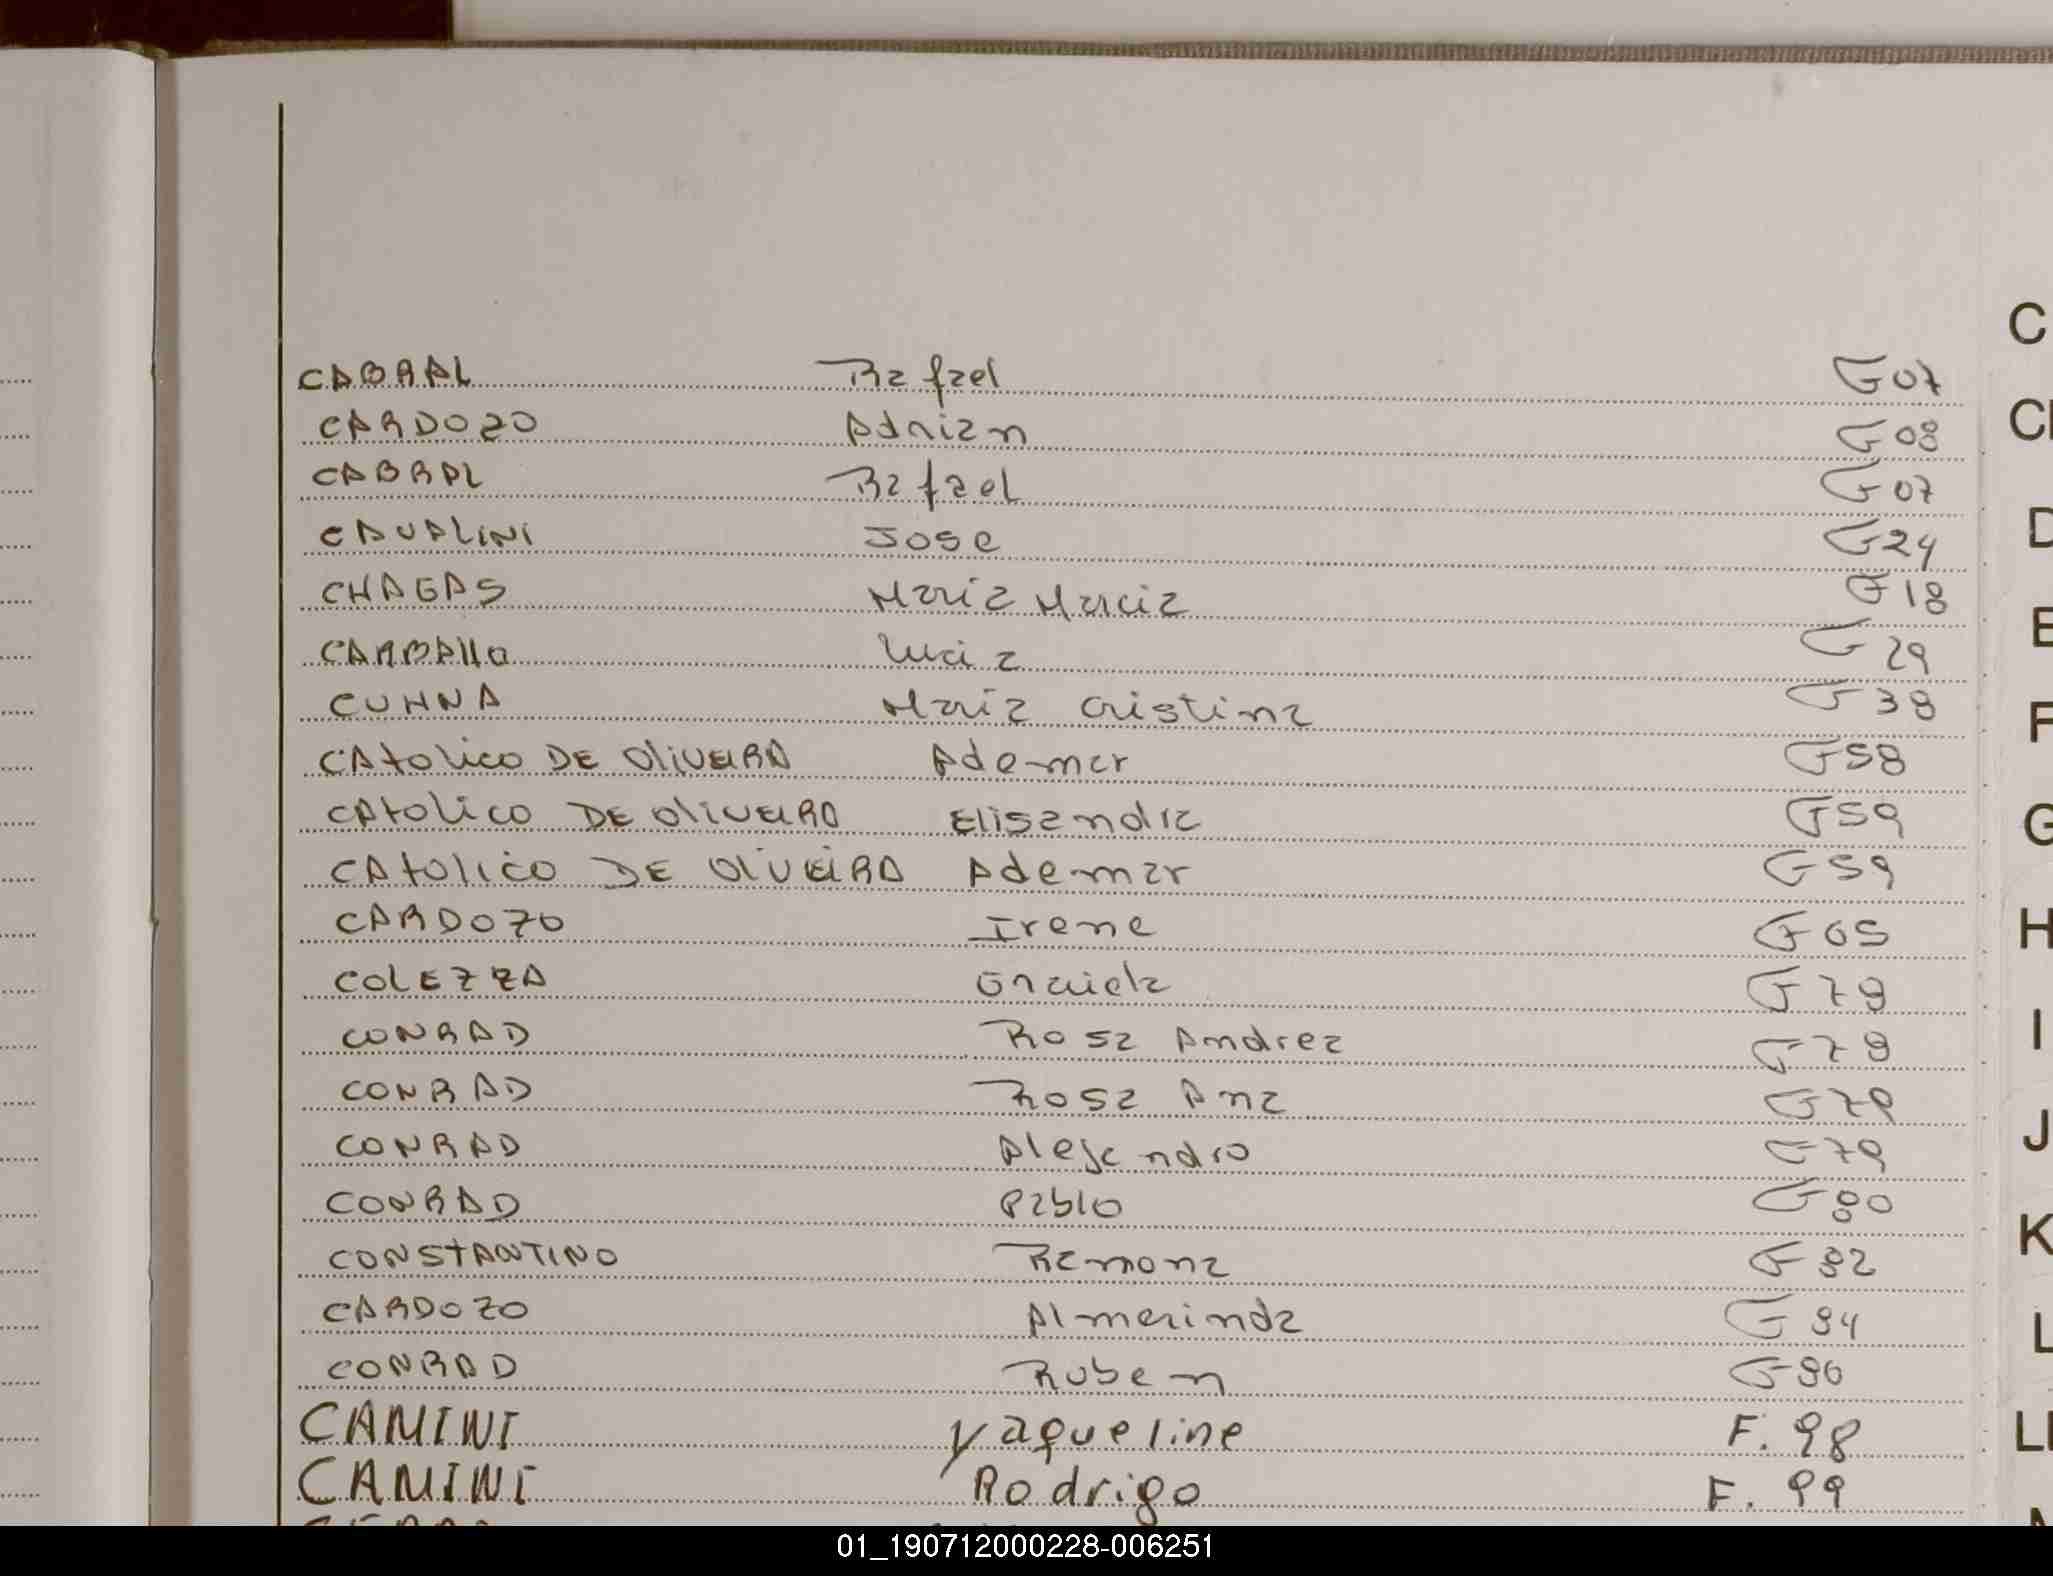 CABRAL Rafael F 07
CARDOZO Adrian F 08
CABRAL Rafael F 07
CAVALINI Jose F 24
CHAGAS Maria Marcia F 18
CARBAllO Lucia F 29
CUHNA Maria Cristina F 38
CAtolico DE OliVEIRA Ademar F 58
CAtolico DE OliVEIRA Elisandra F 59
CAtolico DE OliVEIRA Ademar F 59
CARDOZO Irene F 65
COLEZZA Graciela F 78
CONRAD Rosa Andrea F 78
CONRAD Rosa Ana F 79
CONRAD Alejandro F 79
CONRAD Pablo F 80
CONSTANTINO Ramona F 82
CARDOZO Almerinda F 84
CONRAD Ruben F 86
CAMINI Yaqueline F. 98
CAMINI Rodrigo F. 99
C
D
E
F
G
H
I
J
K
L
01_190712000228-006251